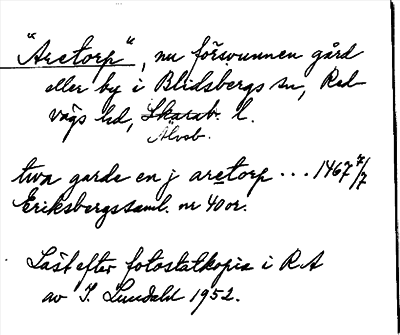 "Aretorp", nu försvunnen gård
eller by i Blidsbergs sn, Red-
vägs hd, Skarab. l.
Älvsb.
twa garde en j aretorp ... 1467 7/7
Eriksbergssaml. nr 40 or.
Läst efter fotostatkopia i RA
av I. Lundahl 1952.